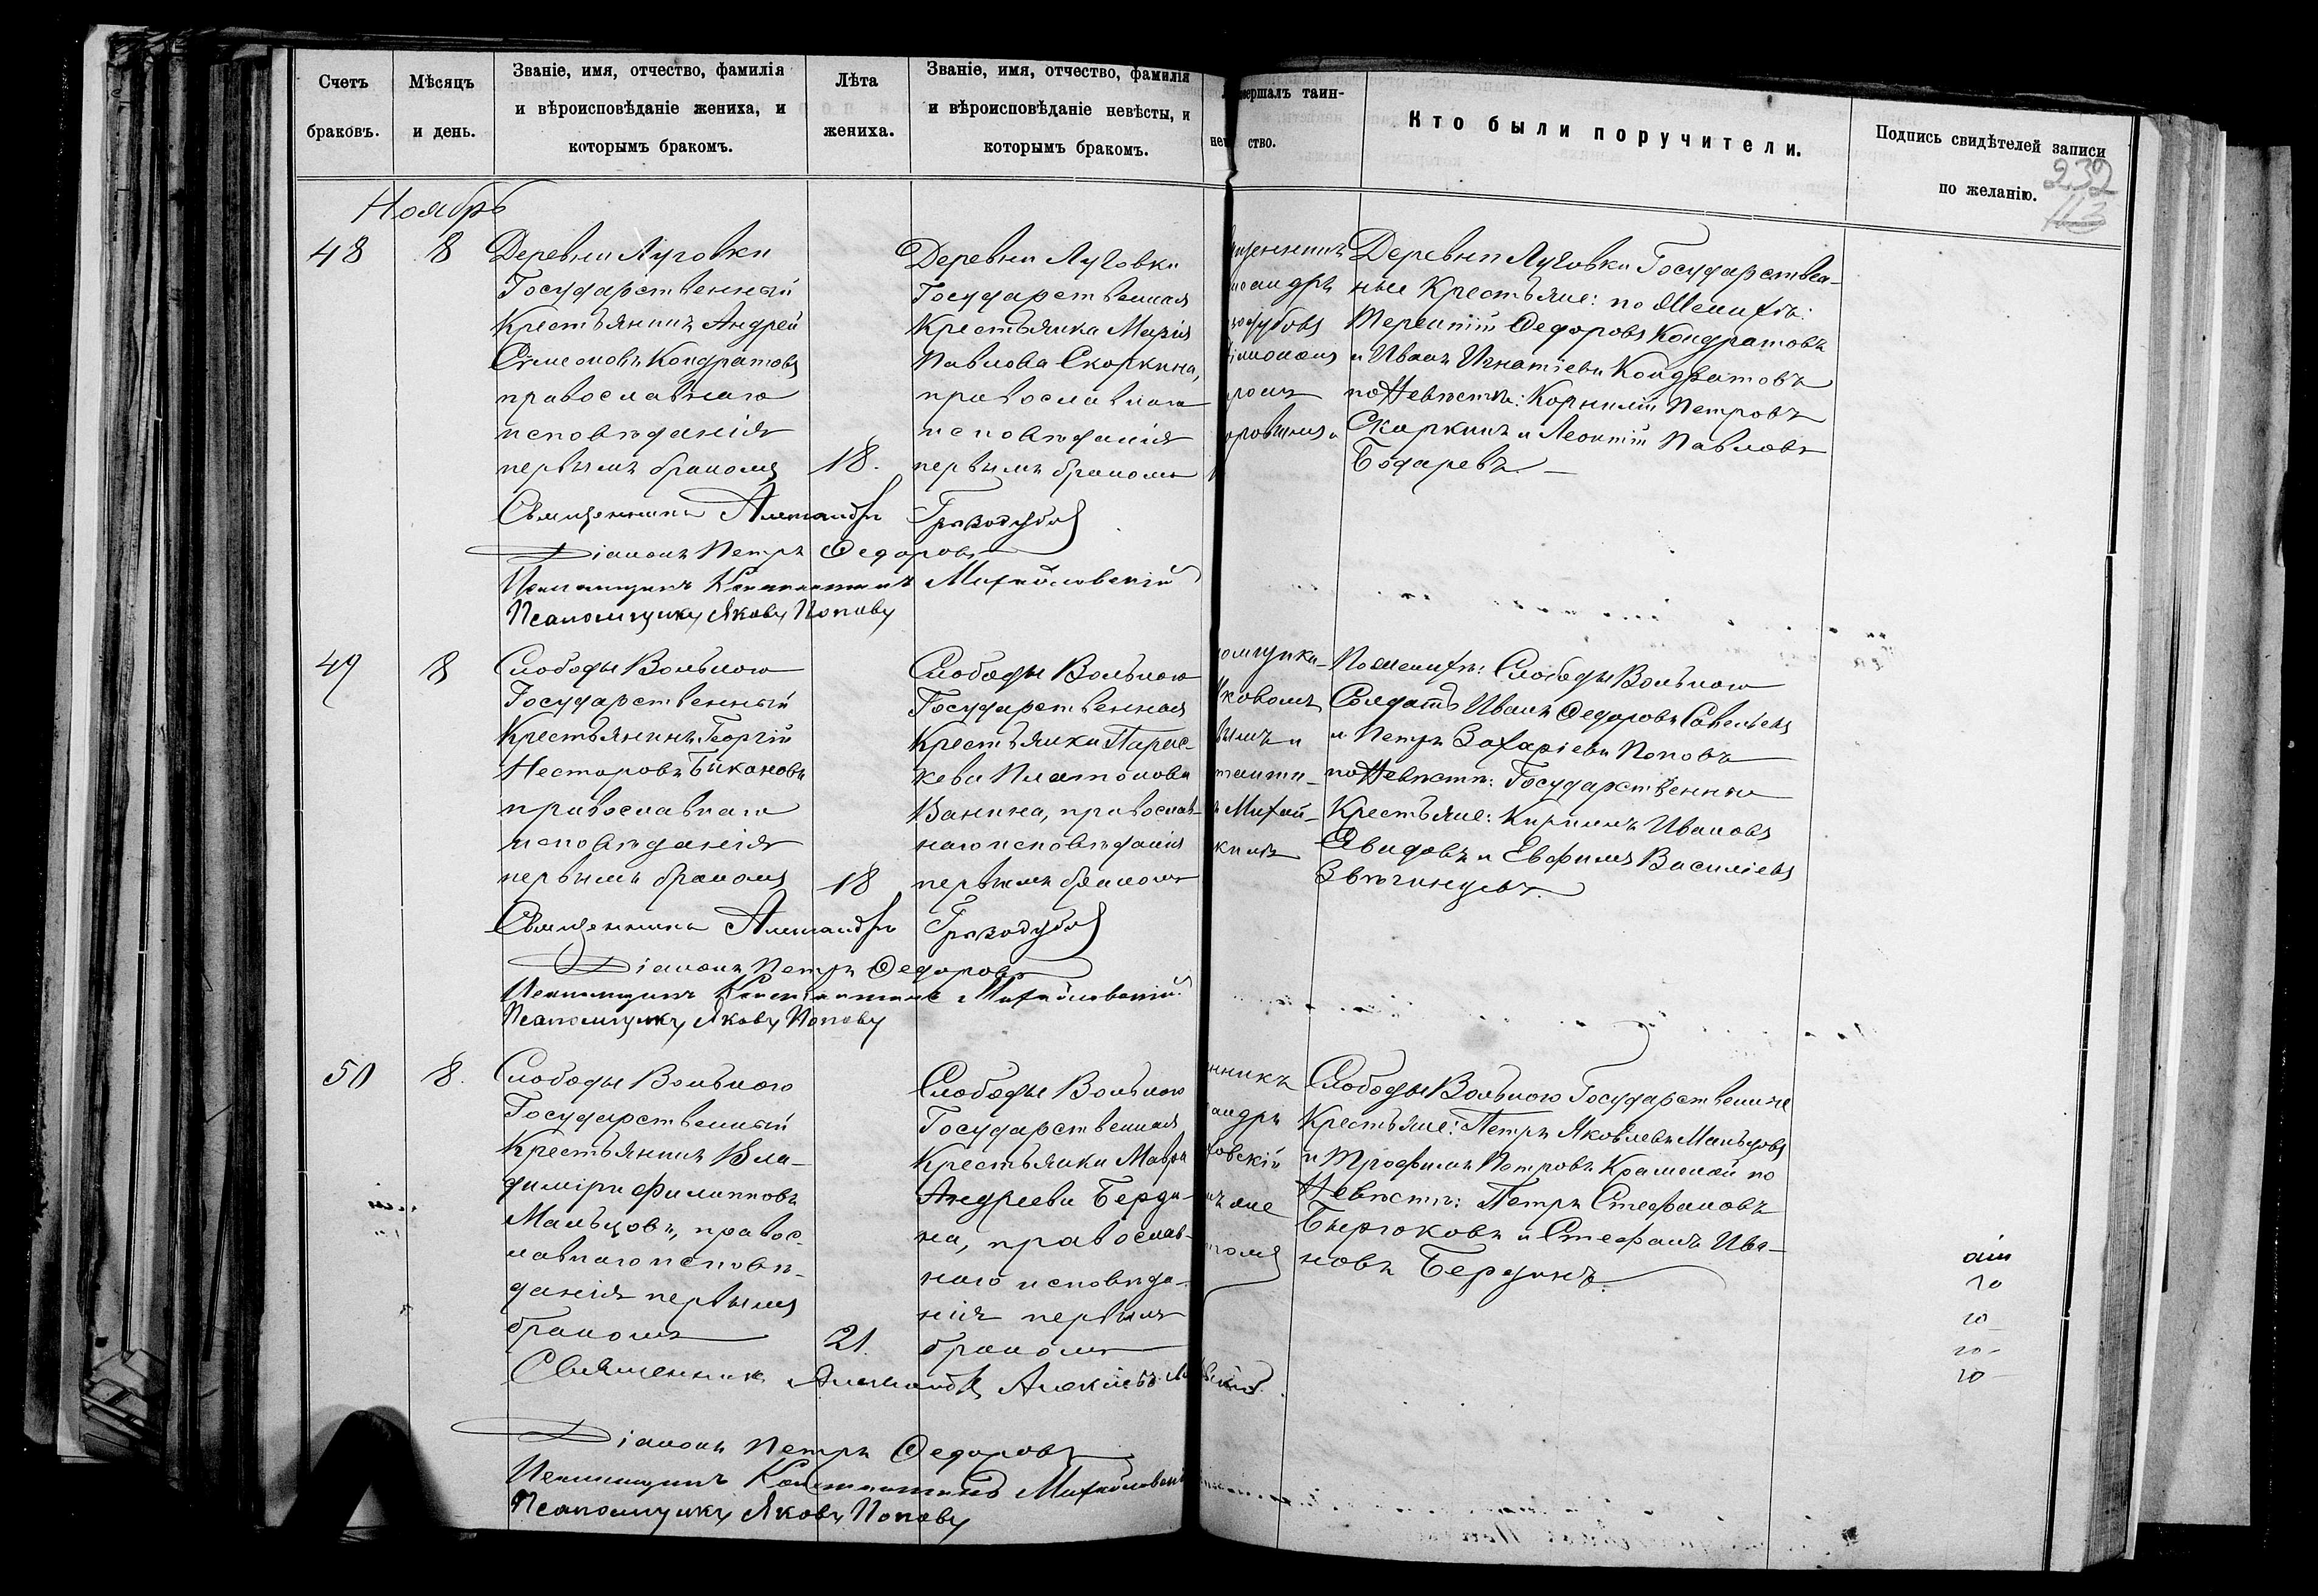 Счетъ браковъ.
Мѣсяцъ и день.
Званіе, имя, отчество, фамилія
и вѣроисповѣданіе жениха, и
которымъ бракомъ.
Лѣта
жениха.
Званіе, имя, отчество, фамилія
и вѣроисповѣданіе невѣсты, и
которымъ бракомъ.
нев
вершалъ таин-
ство.
Кто были поручители.
Подпись свидѣтелей записи
по желанію.
232
Ноябрь
48
8
Деревни Луговки
Государственный
Крестьянинъ Андрей
Симеоновъ Кондратовъ
православнаго
исповѣданія
первымъ бракомъ
18.
Деревни Луговки
Государственная
Крестьянка Марія
Павлова Скоркина,
православнаго
исповѣданія
первымъ бракомъ
Деревни Луговки Государствен-
ные Крестьяне: по Женихѣ:
Терентій Федоровъ Кондратовъ
и Иванъ Игнатіевъ Кондратовъ
по Невѣстѣ: Корнилій Петровъ
Скоркинъ и Леонтій Павловъ
Бодаревъ.
Священникъ Александръ Гризодубовъ
Діаконъ Петръ Федоровъ
Псаломщикъ Константинъ Михайловскій
Псаломщикъ Яковъ Поповъ
49
8
Слободы Вольною
Государственный
Крестьянинъ Георгій
Несторовъ Бикановъ
православнаго
исповѣданія
первымъ бракомъ
18
Слободы Вольною
Государственная
Крестьянка Парас-
кева Платонова
Ванина, православ-
наго исповѣданія
первымъ бракомъ
По Женихѣ: Слободы Вольною
Солдатъ Иванъ Федоровъ Савельевъ
и Петръ Захаріевъ Поповъ
по Невѣстѣ: Государственные
Крестьяне: Кириллъ Ивановъ
Давидовъ и Евфимъ Василіевъ
Звягинцевъ.
Священникъ Александръ Гризодубовъ
Діаконъ Петръ Федоровъ
Псаломщикъ Константинъ Михайловскій
Псаломщикъ Яковъ Поповъ
50
8.
Слободы Вольною
Государственный
Крестьянинъ Вла-
диміръ Филипповъ
Мальцовъ, правос-
лавнаго исповѣ-
данія первымъ
бракомъ
21.
Слободы Вольною
Государственная
Крестьянка Мавра
Андреева Берди-
на, православ-
наго исповѣда-
нія первымъ
бракомъ
Слободы Вольною Государственные
Крестьяне: Петръ Яковлевъ Мальцовъ
и Трофимъ Петровъ по
Невѣстѣ: Петръ Стефановъ
Бирюковъ и Стефанъ Ива-
новъ Бердинъ.
Священникъ Александръ Алексѣевъ
Діаконъ Петръ Федоровъ
Псаломщикъ Константинъ Михайловскій
Псаломщикъ Яковъ Поповъ